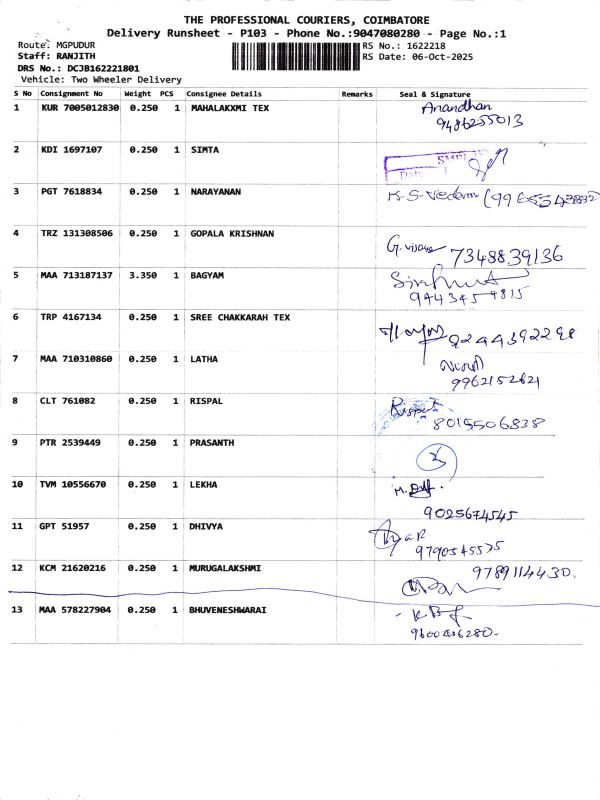 THE PROFESSIONAL COURIERS, COIMBATORE
Delivery Runsheet - P103 - Phone No.:9047080280 - Page No.:1
Route: MGPUDUR
RS No.: 1622218
Staff: RANJITH
RS Date: 06-Oct-2025
DRS No.: DCJB162221801
Vehicle: Two Wheeler Delivery
S No Consignment No Weight PCS Consignee Details Remarks Seal & Signature
1 KUR 7005012830 0.250 1 MAHALAKXMI TEX Anandhan
9486255013
2 KDI 1697107 0.250 1 SIMTA
3 PGT 7618834 0.250 1 NARAYANAN
4 TRZ 131308506 0.250 1 GOPALA KRISHNAN
7348839136
5 MAA 713187137 3.350 1 BAGYAM
6 TRP 4167134 0.250 1 SREE CHAKKARAH TEX
7 MAA 710310860 0.250 1 LATHA
9962152621
8 CLT 761082 0.250 1 RISPAL
8015506838
9 PTR 2539449 0.250 1 PRASANTH
10 TVM 10556670 0.250 1 LEKHA
9025674545
11 GPT 51957 0.250 1 DHIVYA
9790545575
12 KCM 21620216 0.250 1 MURUGALAKSHMI 9789114430.
13 MAA 578227904 0.250 1 BHUVENESHWARAI